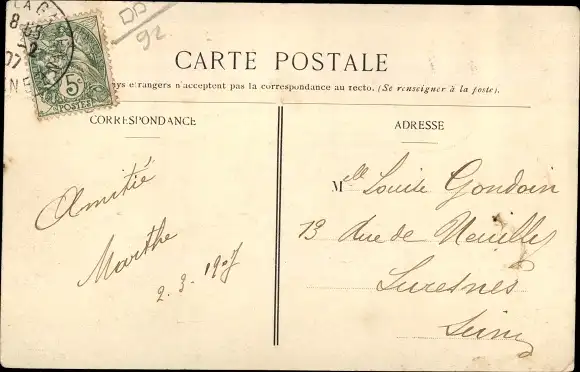 LA G
8-05
-2
07
NE
5c
POSTES
DD
92
CARTE POSTALE
ys étrangers n'acceptent pas la correspondance au recto. (Se renseigner à la poste).
CORRESPONDANCE
Amitié
Marthe
2.3.1907
ADRESSE
Melle Louise Gondoin
13 Rue de Neuilly
Suresnes
Seine